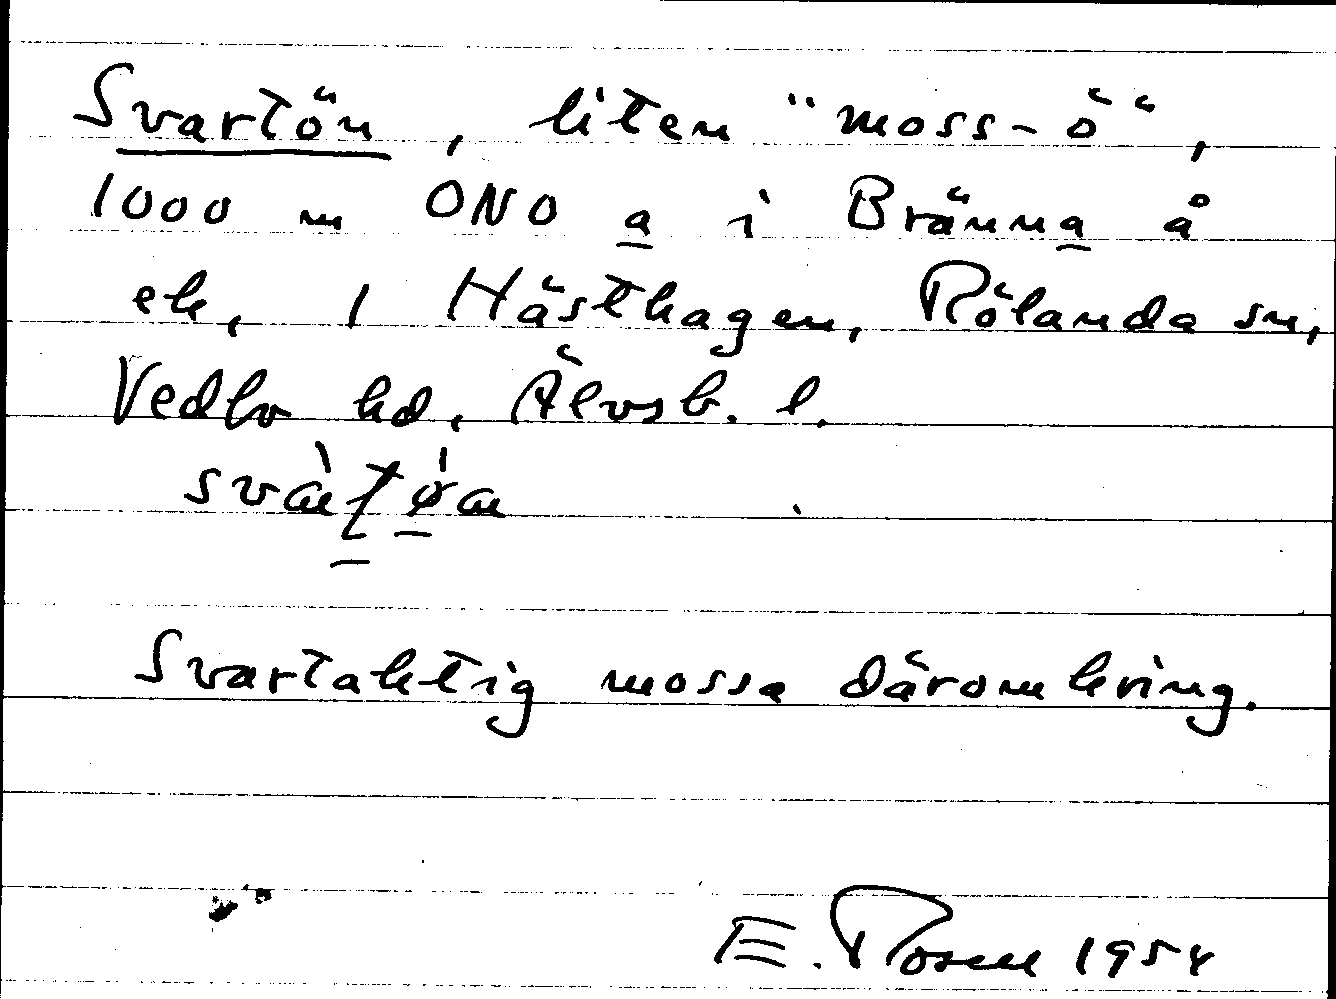 Svartön, liten "moss-ö",
1000 m ONO a i Bränna å
ek, 1 Hästhagen, Rölanda sn,
Vedbo hd, Älvsb. l.
Svartaktig mossa däromkring.
E. Rosell 1954